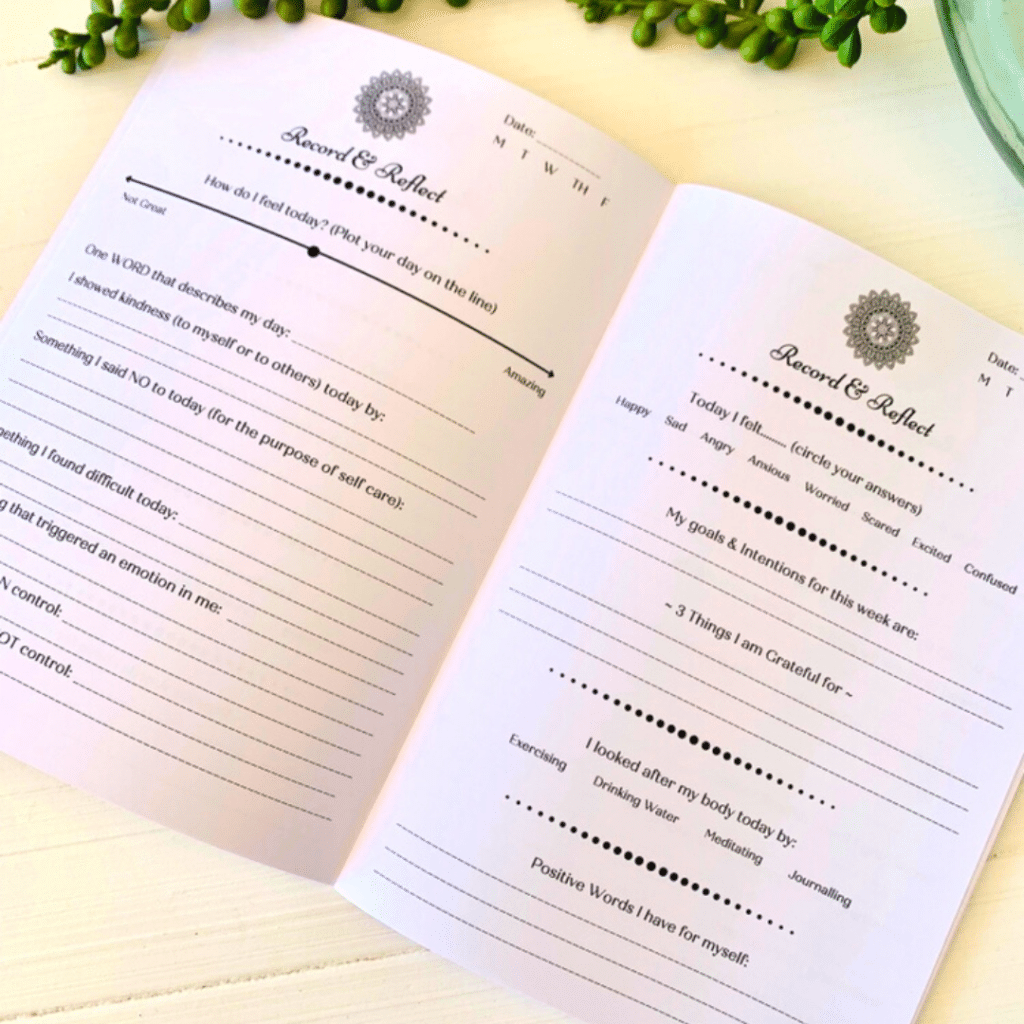 Date:
M T W TH F
Record & Reflect
How do I feel today? (Plot your day on the line)
Not Great
Amazing
One WORD that describes my day:
I showed kindness (to myself or to others) today by:
Something I said NO to today (for the purpose of self care):
I found difficult today:
that triggered an emotion in me:
control:
control:
Date:
M T
Record & Reflect
Today I felt...... (circle your answers)
Happy Sad Angry Anxious Worried Scared Excited Confused
My goals & Intentions for this week are:
~ 3 Things I am Grateful for ~
I looked after my body today by:
Exercising Drinking Water Meditating Journalling
Positive Words I have for myself: